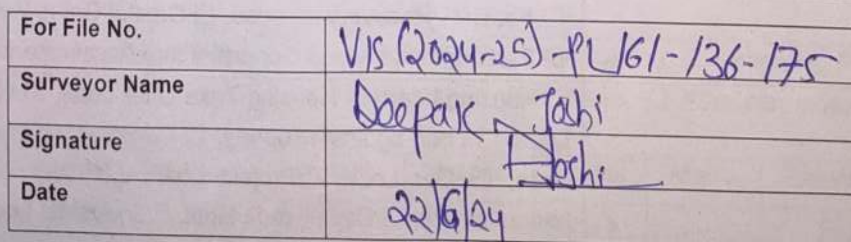 For File No. VIS (2024-25)-PL161-136-175
Surveyor Name Deepak Joshi
Signature Joshi
Date 22/6/24